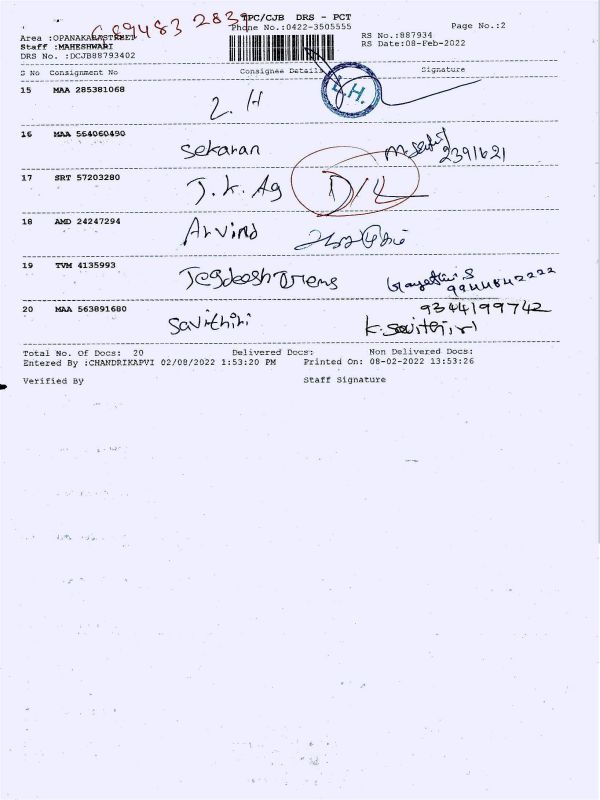 TPC/CJB DRS - PCT
Phone No.:0422-3505555
Page No.:2
Area :OPANAKARASTREET
RS No.:887934
Staff :MAHESHWARI
RS Date:08-Feb-2022
DRS No. :DCJB88793402
S No Consignment No Consignee Details Signature
15 MAA 285381068
L.H.
16 MAA 564060490
Sekaran
2391621
17 SRT 57203280
J.K. Ag D/L
18 AMD 24247294
Arvind
19 TVM 4135993
Gayathri.S
9944842222
20 MAA 563891680
Savithiri
9344199742
K. Savithiri
Total No. Of Docs: 20 Delivered Docs: Non Delivered Docs:
Entered By :CHANDRIKAPVI 02/08/2022 1:53:20 PM Printed On: 08-02-2022 13:53:26
Verified By Staff Signature